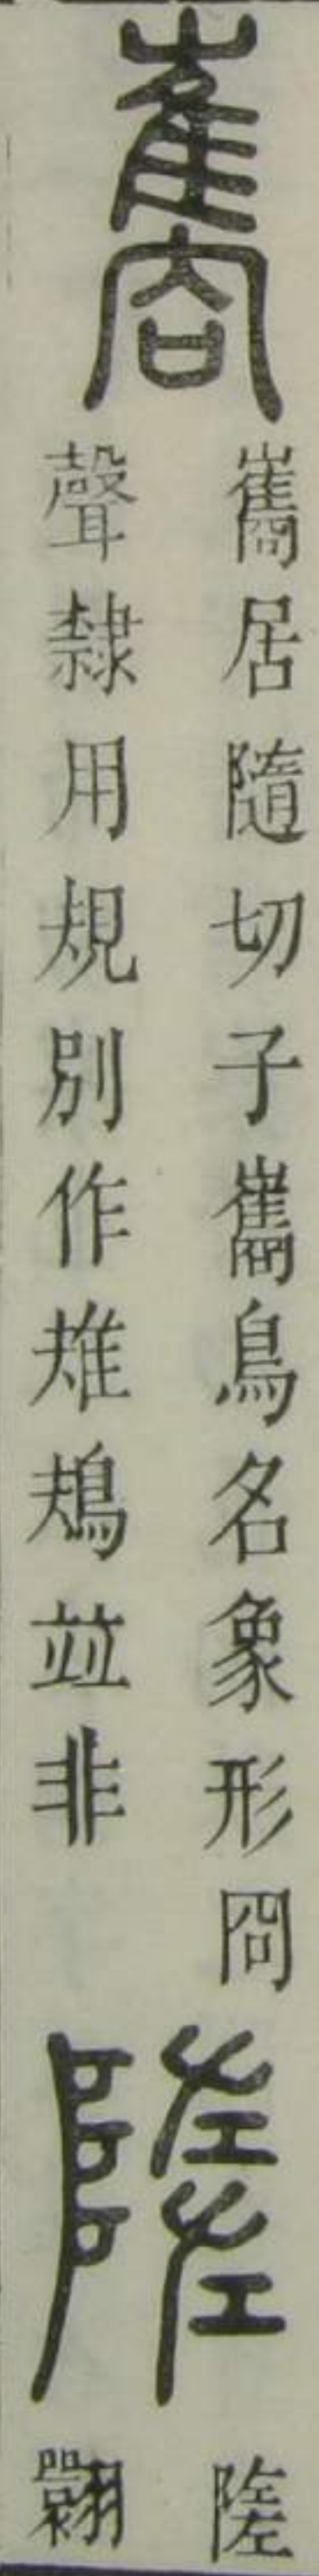 巂
巂居隨切子巂鳥名象形冏
聲隸用規別作鳺竝非
隓
隓
翾